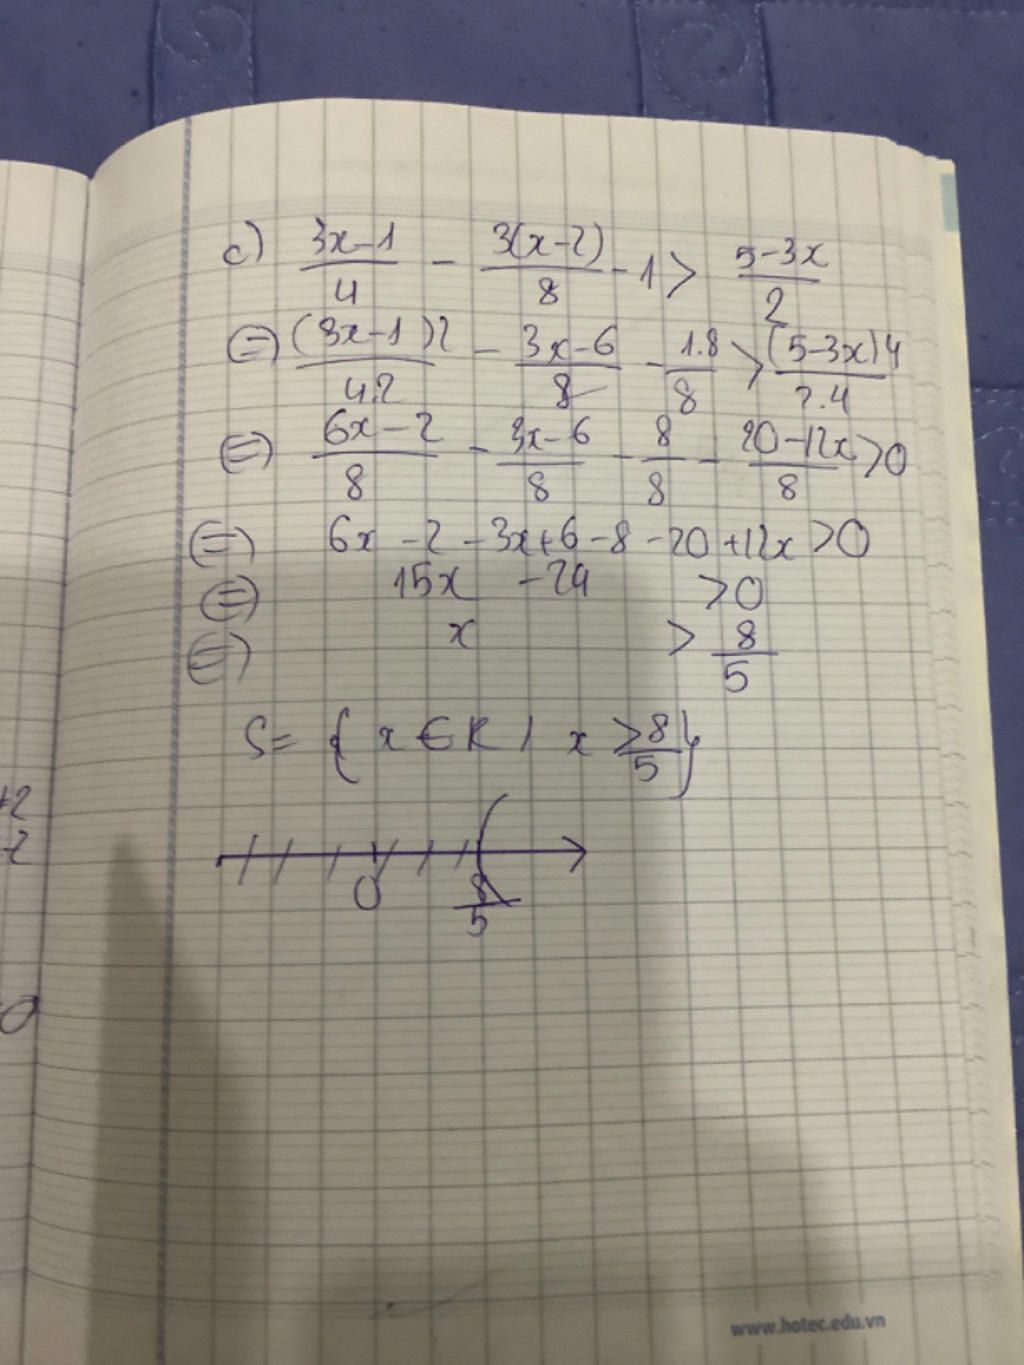 c) (3x-1)/4 - 3(x-2)/8 - 1 > (5-3x)/2
(=) (3x-1)2/4.2 - (3x-6)/8 - 1.8/8 > (5-3x)4/2.4
(=) (6x-2)/8 - (3x-6)/8 - 8/8 - (20-12x)/8 >0
(=) 6x -2 -3x+6-8-20+12x >0
(=) 15x -24 >0
(=) x > 8/5
S= { x ∈ R | x > 8/5 }
0 8/5
+2
-2
0
www.hotec.edu.vn